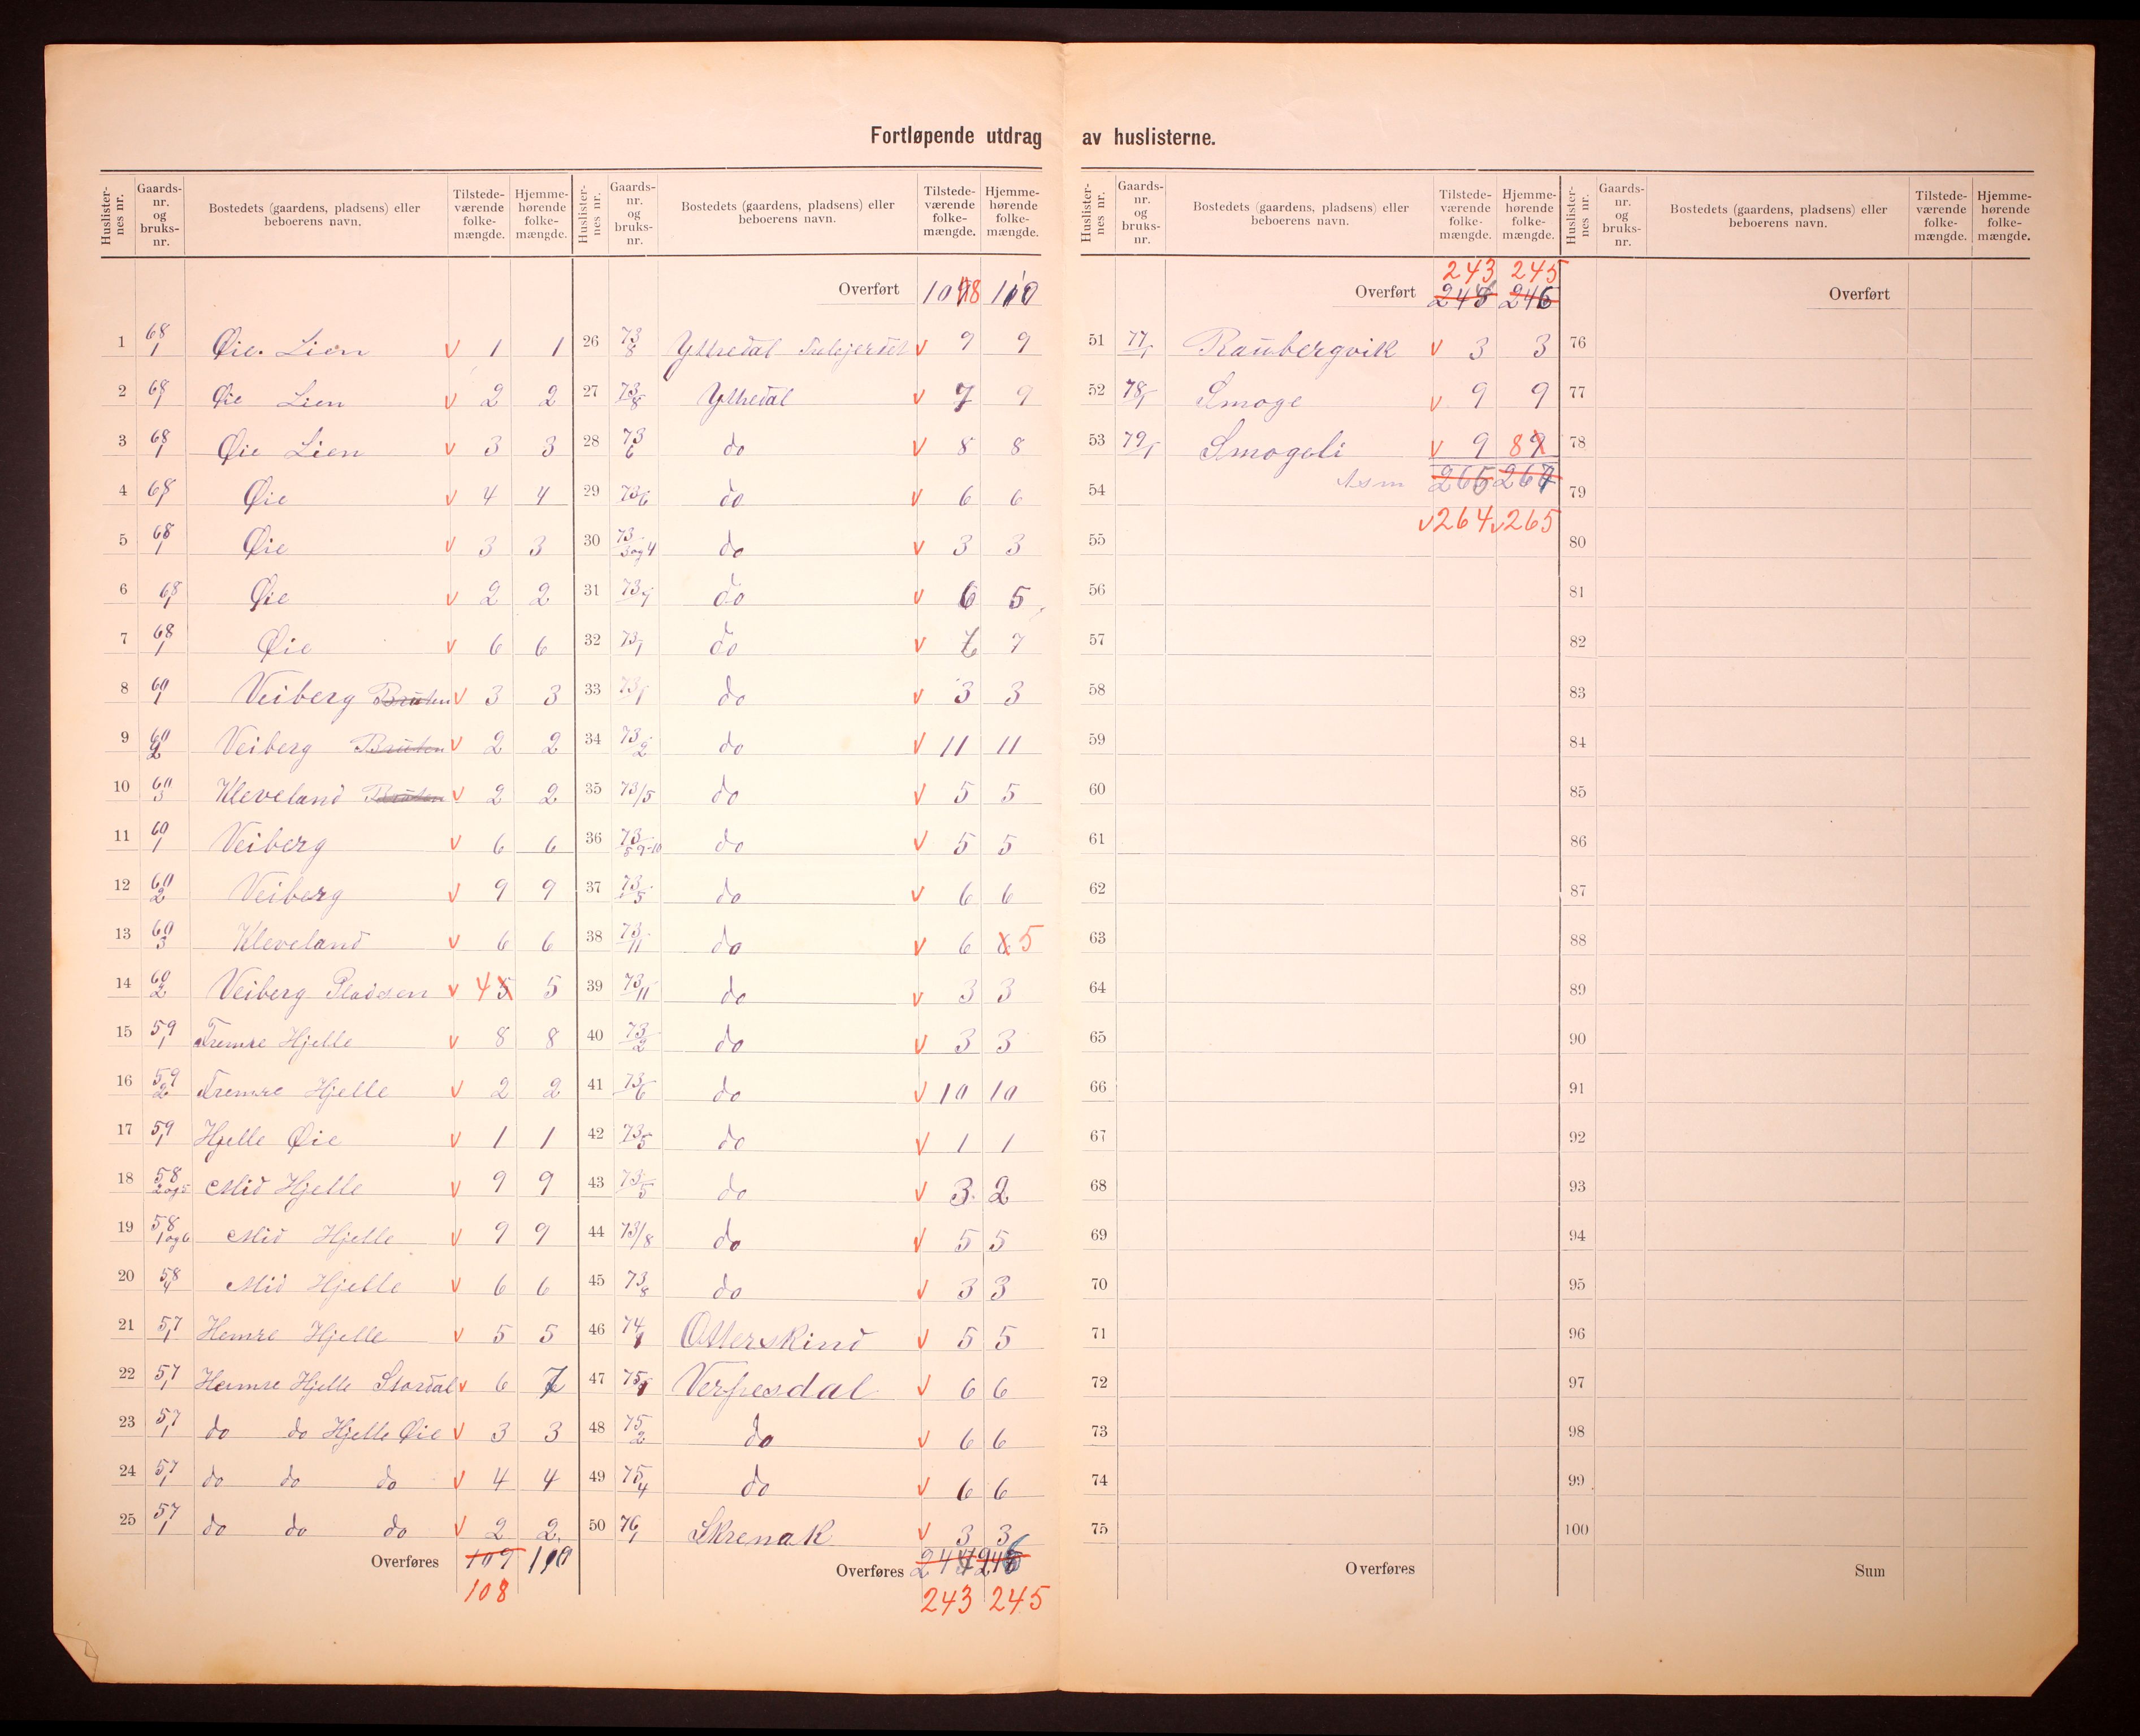 Fortløpende utdrag av huslisterne.
Huslister-nes nr. Gaards-nr. og bruks-nr. Bostedets (gaardens, pladsens) eller beboerens navn. Tilstede-værende folke-mængde. Hjemme-hørende folke-mængde.
1 68/1 Øie. Lien v 1 1
2 68/1 Øie Lien v 2 2
3 68/1 Øie Lien v 3 3
4 68/1 Øie v 4 4
5 68/1 Øie v 3 3
6 68/1 Øie v 2 2
7 68/1 Øie v 6 6
8 60/1 Veiberg Bruten v 3 3
9 60/2 Veiberg Bruten v 2 2
10 60/3 Kleveland Bruten v 2 2
11 60/1 Veiberg v 6 6
12 60/2 Veiberg v 9 9
13 60/3 Kleveland v 6 6
14 60/2 Veiberg Pladsen v 4 5 5
15 59/1 Fremre Hjelle v 8 8
16 59/2 Fremre Hjelle v 2 2
17 59/1 Hjelle Øie v 1 1
18 58/2og5 Mid Hjelle v 9 9
19 58/1og6 Mid Hjelle v 9 9
20 58/4 Mid Hjelle v 6 6
21 57/1 Hemre Hjelle v 5 5
22 57/1 Hemre Hjelle Stordal v 6 7
23 57/1 do do Hjelle Øie v 3 3
24 57/1 do do do v 4 4
25 57/1 do do do v 2 2
Overføres 109 110
108
Huslister-nes nr. Gaards-nr. og bruks-nr. Bostedets (gaardens, pladsens) eller beboerens navn. Tilstede-værende folke-mængde. Hjemme-hørende folke-mængde.
Overført 109 8 110
26 73/8 Ytredal v 9 9
27 73/8 Ytredal v 7 9
28 73/6 do v 8 8
29 73/6 do v 6 6
30 73/3og4 do v 3 3
31 73/9 do v 6 5
32 73/1 do v 7 7
33 73/1 do v 3 3
34 73/2 do v 11 11
35 73/5 do v 5 5
36 73/8 9-10 do v 5 5
37 73/5 do v 6 6
38 73/11 do v 6 6 5
39 73/11 do v 3 3
40 73/2 do v 3 3
41 73/6 do v 10 10
42 73/5 do v 1 1
43 73/5 do v 3 2
44 73/8 do v 5 5
45 73/8 do v 3 3
46 74/1 Otterskind v 5 5
47 75/1 Verpesdal v 6 6
48 75/2 do v 6 6
49 75/4 do v 6 6
50 76/1 Skrenak v 3 3
Overføres 244 246
243 245
Huslister-nes nr. Gaards-nr. og bruks-nr. Bostedets (gaardens, pladsens) eller beboerens navn. Tilstede-værende folke-mængde. Hjemme-hørende folke-mængde.
243 245
Overført 244 246
51 77/1 Raubergvik v 3 3
52 78/1 Smoge v 9 9
53 79/1 Smogeli v 9 8 9
54 265 267
55 v 264 v 265
56
57
58
59
60
61
62
63
64
65
66
67
68
69
70
71
72
73
74
75
Overføres
Huslister-nes nr. Gaards-nr. og bruks-nr. Bostedets (gaardens, pladsens) eller beboerens navn. Tilstede-værende folke-mængde. Hjemme-hørende folke-mængde.
Overført
76
77
78
79
80
81
82
83
84
85
86
87
88
89
90
91
92
93
94
95
96
97
98
99
100
Sum